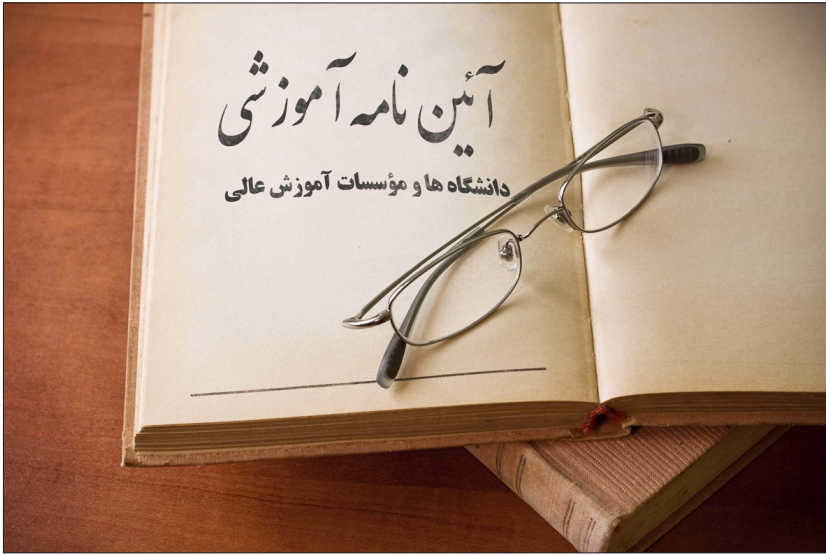 آئین نامه آموزشی
دانشگاه ها و مؤسسات آموزش عالی